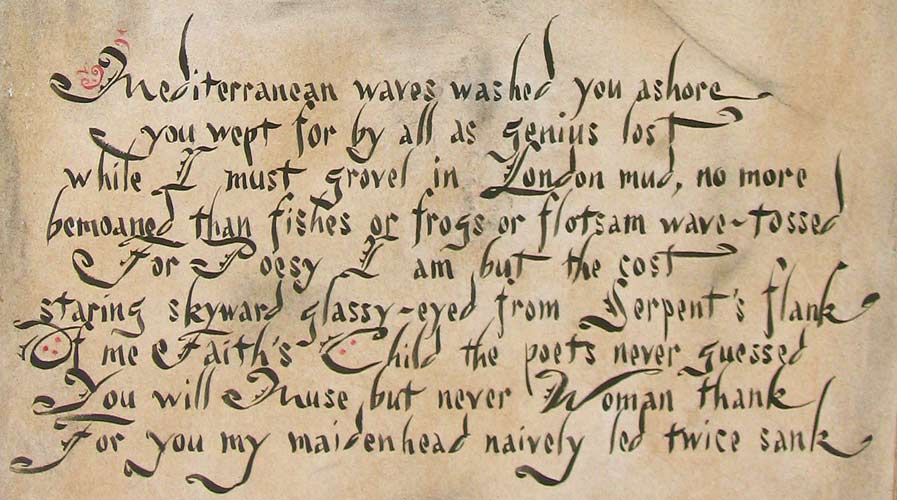 Mediterranean waves washed you ashore
you wept for by all as genius lost
while I must grovel in London mud, no more
bemoaned than fishes or frogs or flotsam wave-tossed
For Poesy I am but the cost
staring skyward glassy-eyed from Serpent's flank
Of me Faith's Child the poets never guessed
You will Muse but never Woman thank
For you my maidenhead naively led twice sank